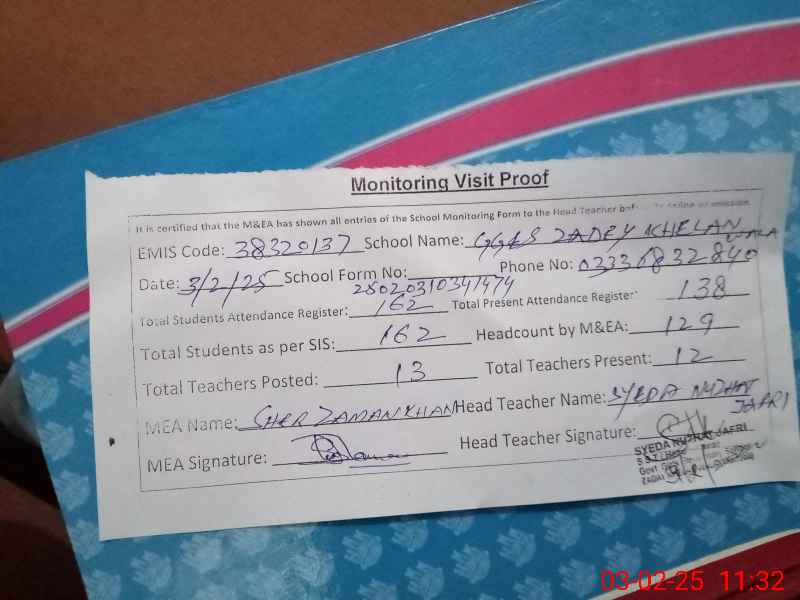 Monitoring Visit Proof
It is certified that the M&EA has shown all entries of the School Monitoring Form to the Head Teacher before online submission.
EMIS Code: 38320137 School Name: GGES ZADEY KHELAN WALA
Date: 3/2/25 School Form No: 25020310341474 Phone No: 03336832840
Total Students Attendance Register: 162 Total Present Attendance Register: 138
Total Students as per SIS: 162 Headcount by M&EA: 129
Total Teachers Posted: 13 Total Teachers Present: 12
MEA Name: SHER ZAMAN KHAN Head Teacher Name: SYEDA NUZHAT JAFRI
MEA Signature: Head Teacher Signature:
SYEDA NUZHAT JAFRI
03-02-25 11:32